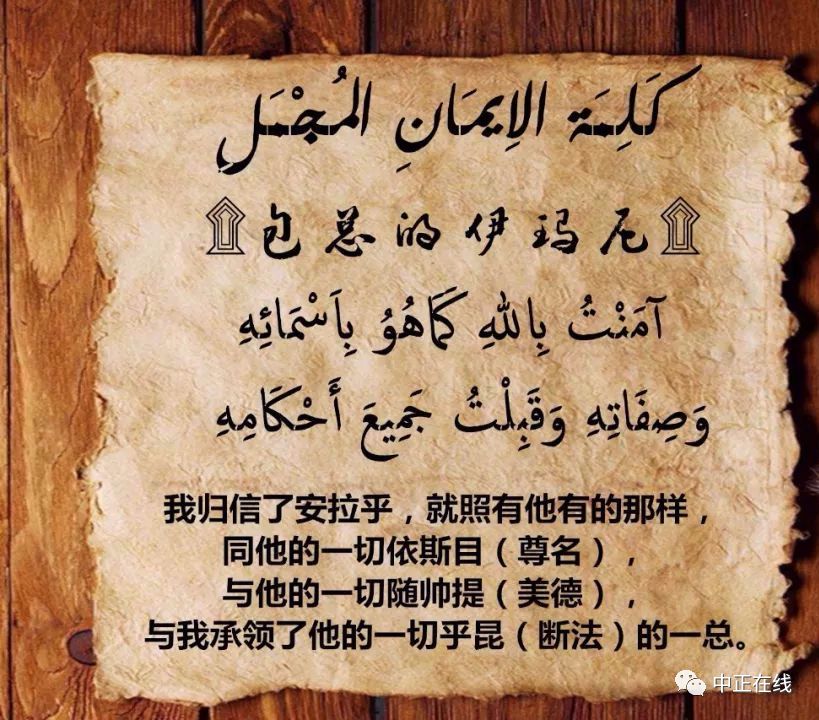 كَلِمَة الاِيمَانِ المُجْمَل
۩ 包总的伊玛尼 ۩
آمَنْتُ بِاللهِ كَمَاهُوُ بِاَسْمَائِهِ
وَصِفَاتِهِ وَقَبِلْتُ جَمِيعَ أَحْكَامِهِ
我归信了安拉乎，就照有他有的那样，
同他的一切依斯目（尊名），
与他的一切随帅提（美德），
与我承领了他的一切乎昆（断法）的一总。
中正在线